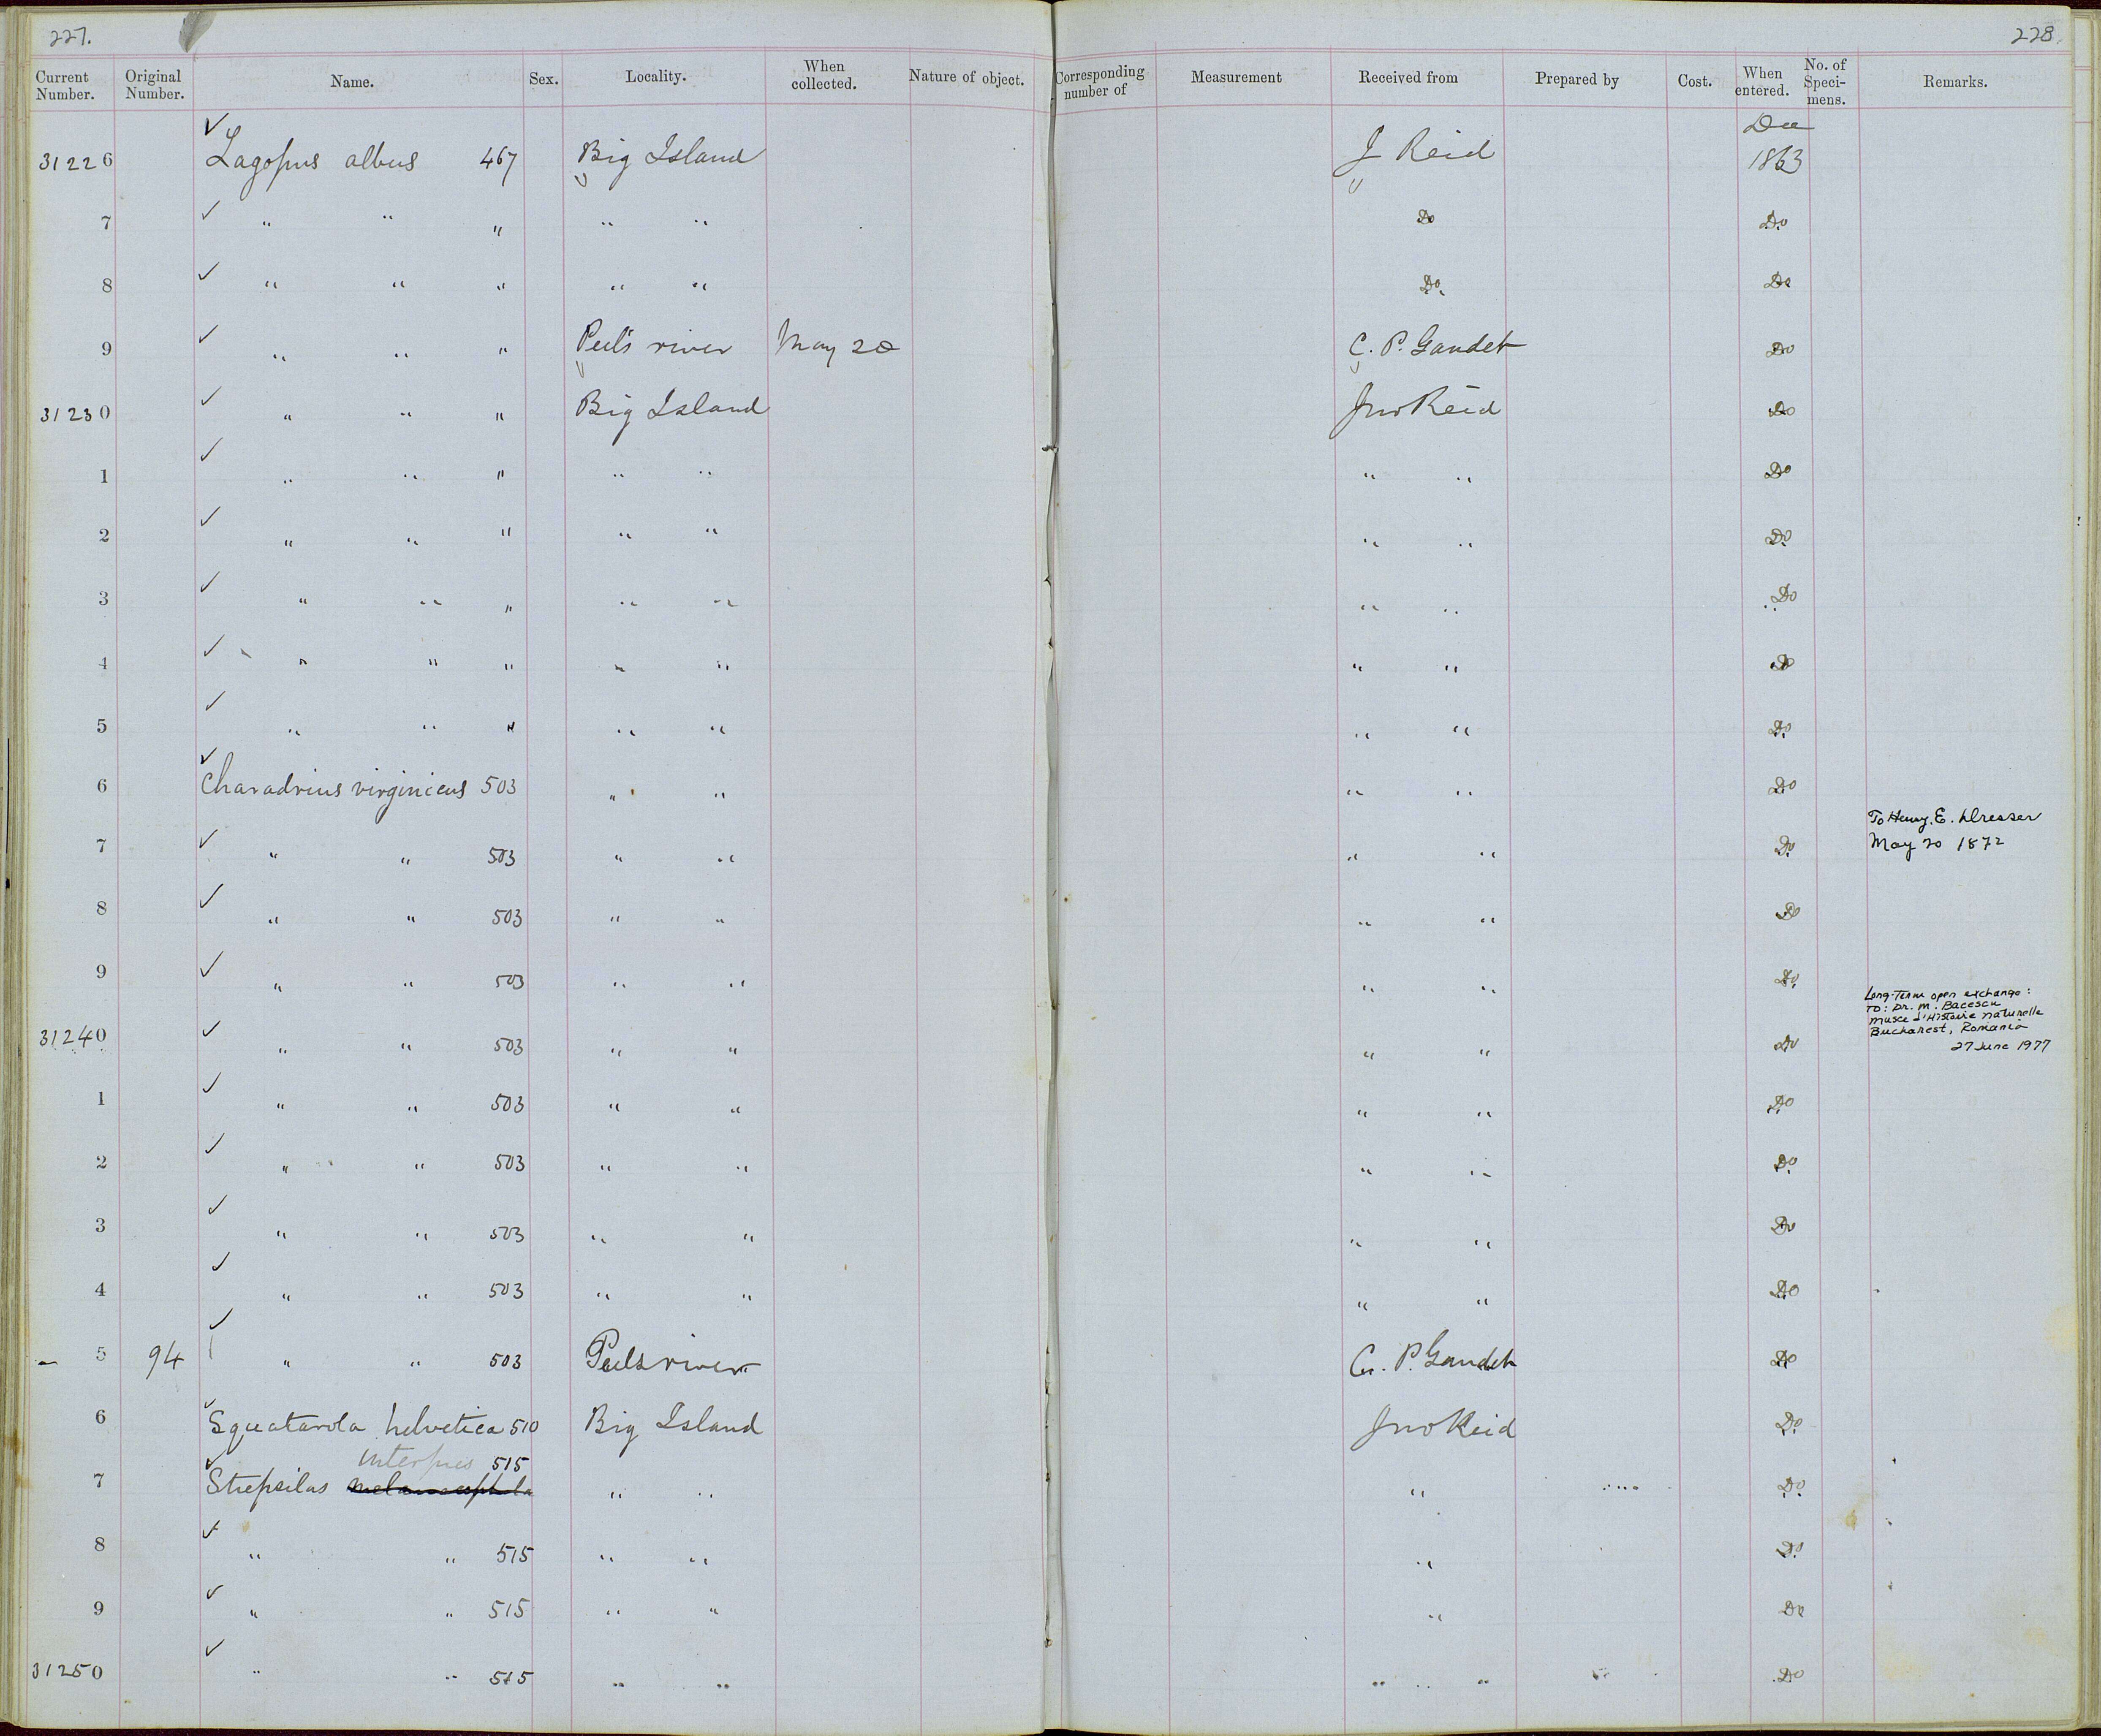 227.
228.
Current Number. Original Number. Name. Sex. Locality. When collected. Nature of object. Corresponding number of Measurement Received from Prepared by Cost. When entered. No. of Speci-mens. Remarks.
31226 ✓ Lagopus albus 467 Big Island J Reid Dec 1863
7 ✓ " " " " " Do Do
8 ✓ " " " " " Do. Do
9 ✓ " " " Peel's river May 20 C. P. Gaudet Do
31230 ✓ " " " Big Island Jno Reid Do
1 ✓ " " " " " " " Do
2 ✓ " " " " " " " Do
3 ✓ " " " " " " " Do
4 ✓ " " " " " " " Do
5 ✓ " " " " " " " Do
6 ✓ Charadrius virginicus 503 " " " " Do
7 ✓ " " 503 " " " " Do To Henry. E. Dresser May 20 1872
8 ✓ " " 503 " " " " Do
9 ✓ " " 503 " " " " Do
31240 ✓ " " 503 " " " " Do Long-Term open exchange: To: Dr. M. Bacescu Musee d'Histoire Naturelle Bucharest, Romania 27 June 1977
1 ✓ " " 503 " " " " Do
2 ✓ " " 503 " " " " Do
3 ✓ " " 503 " " " " Do
4 ✓ " " 503 " " " " Do
5 94 ✓ " " 503 Peels river C. P. Gaudet Do
6 ✓ Squatarola helvetica 510 Big Island Jno Reid Do
interpres 515
7 ✓ Strepsilas melanocephala " " " Do
8 ✓ " " 515 " " " Do
9 ✓ " " 515 " " " Do
31250 ✓ " " 515 " " " " Do